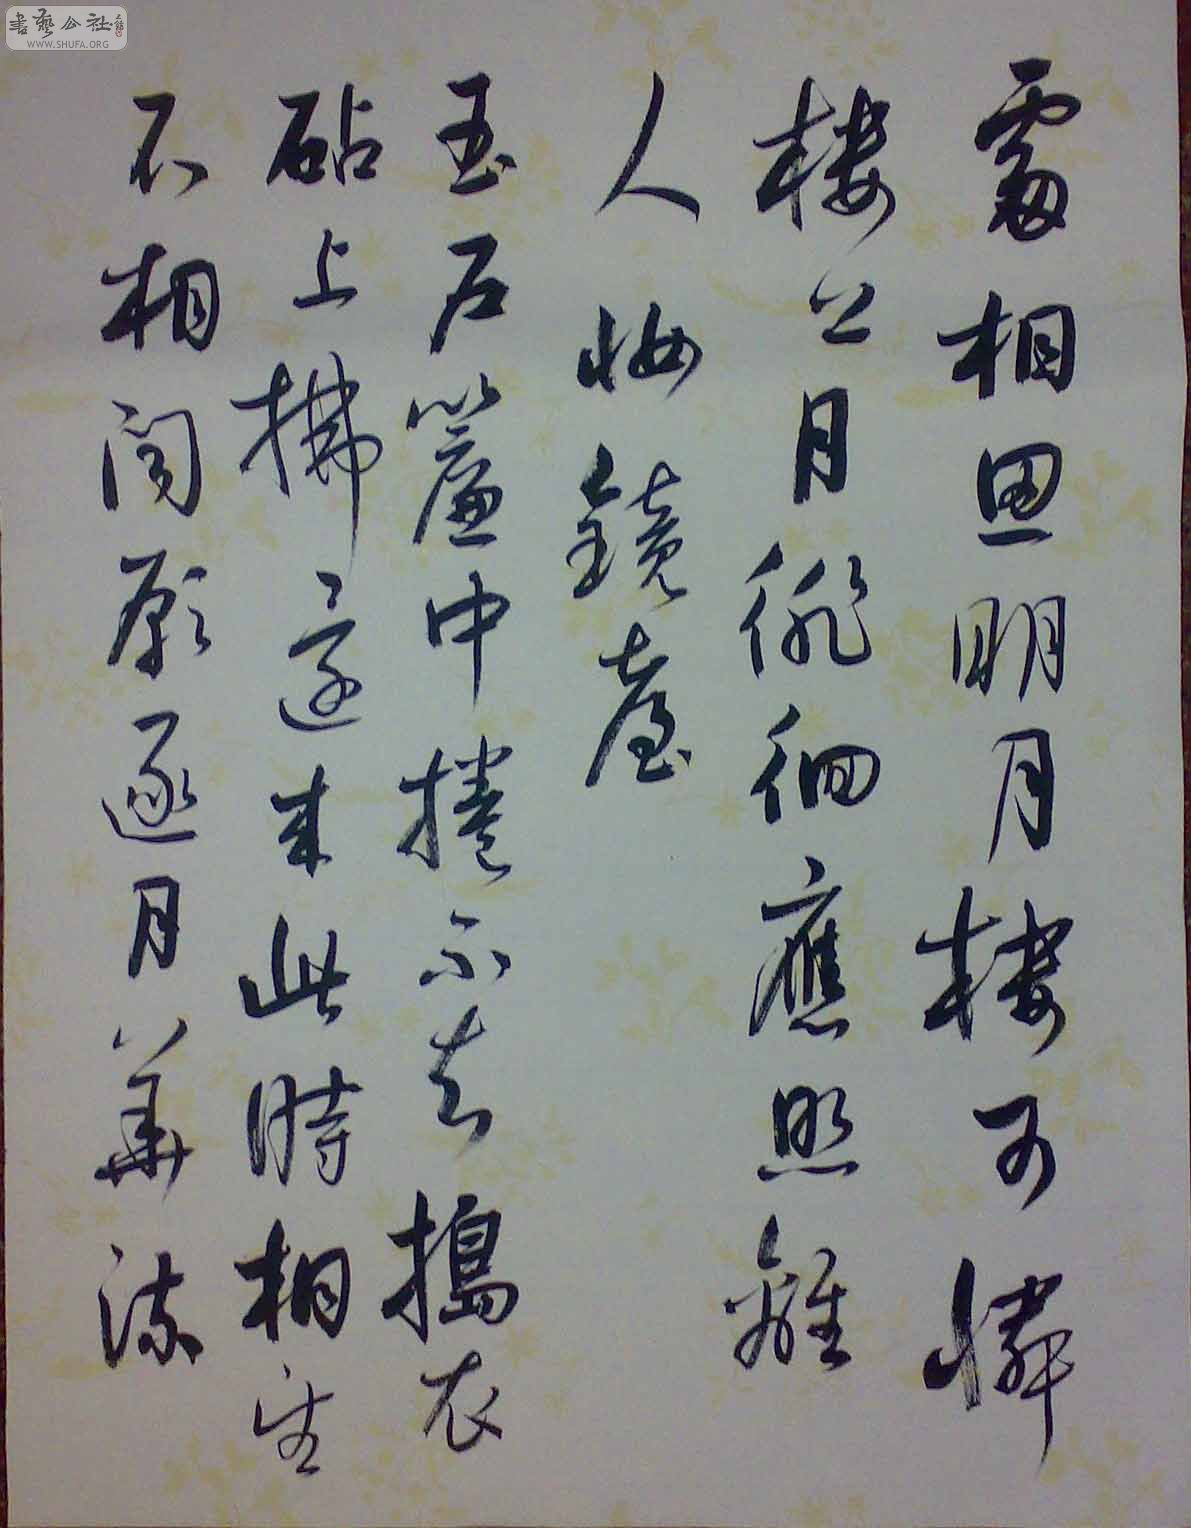 書藝公社
WWW.SHUFA.ORG
處相思明月樓可憐
樓上月徘徊應照離
人妝鏡臺
玉户簾中捲不去搗衣
砧上拂還来此時相望
不相聞願逐月華流